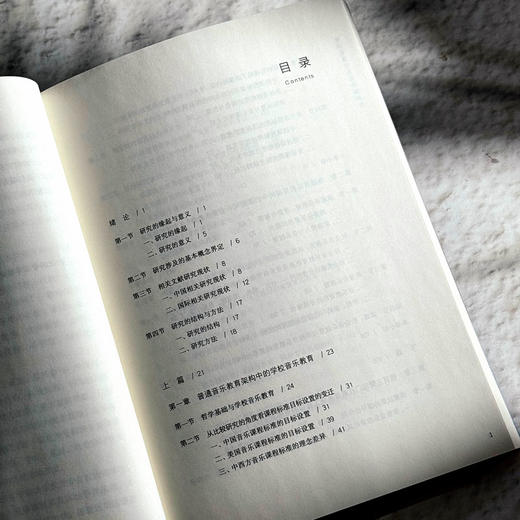 目 录
Contents
绪 论 / 1
第一节 研究的缘起与意义 / 1
一、研究的缘起 / 1
二、研究的意义 / 5
第二节 研究涉及的基本概念界定 / 6
第三节 相关文献研究现状 / 8
一、中国相关研究现状 / 8
二、国际相关研究现状 / 12
第四节 研究的结构与方法 / 17
一、研究的结构 / 17
二、研究方法 / 18
上 篇 / 21
第一章 普通音乐教育架构中的学校音乐教育 / 23
第一节 哲学基础与学校音乐教育 / 24
第二节 从比较研究的角度看课程标准目标设置的变迁 / 31
一、中国音乐课程标准的目标设置 / 31
二、美国音乐课程标准的目标设置 / 39
三、中西方音乐课程标准的理念差异 / 41
1